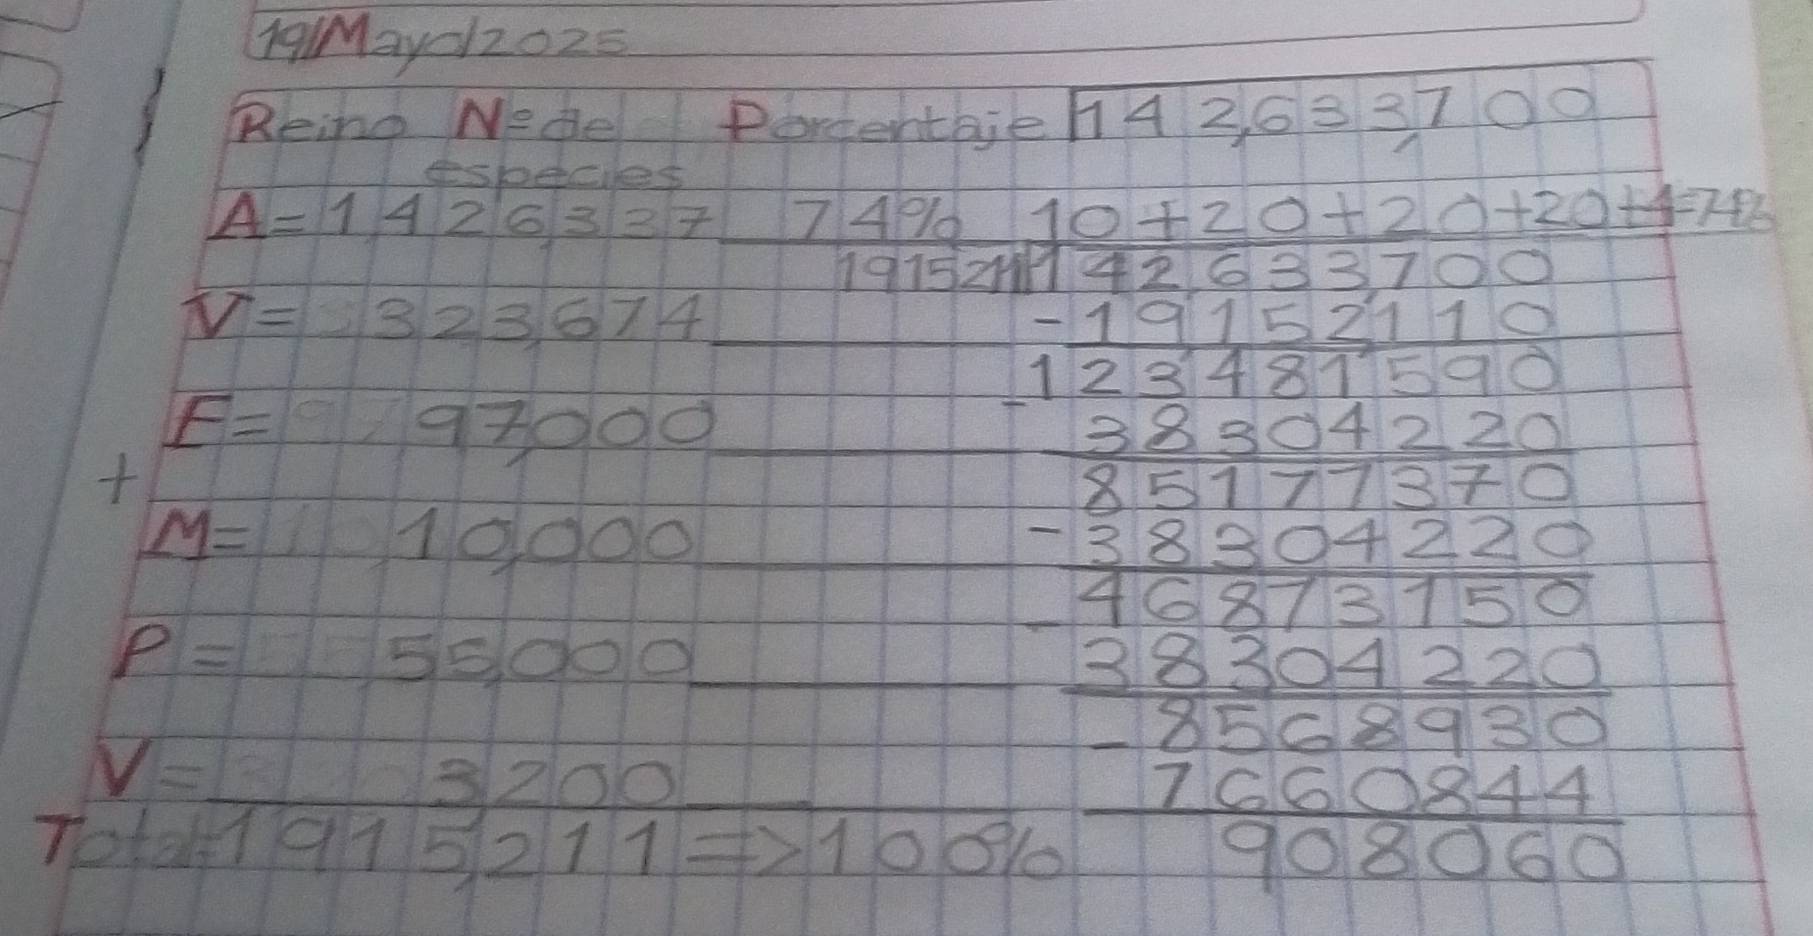 19/Mayo/2025
Reino Nº de Porcentaje 142,633,700
especies
A=1,426,337 74% 10+20+20+20+4=74%
1915211 142633700
V= 323,674 -19152110
123481590
F= 97,000 -38304220
85177370
+
M= 10,000 -38304220
46873150
P= 55,000 -38304220
8568930
V= 3200 -7660844
Total=1915,211=>100% 908060